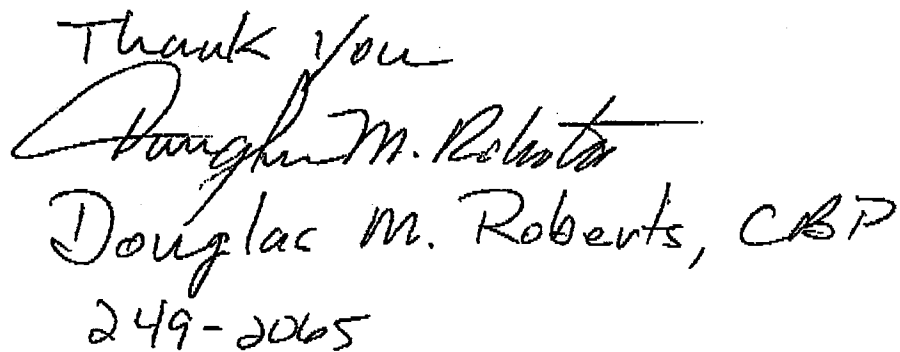 Thank You
Douglas M. Roberts
Douglas M. Roberts, CBP
249-2065